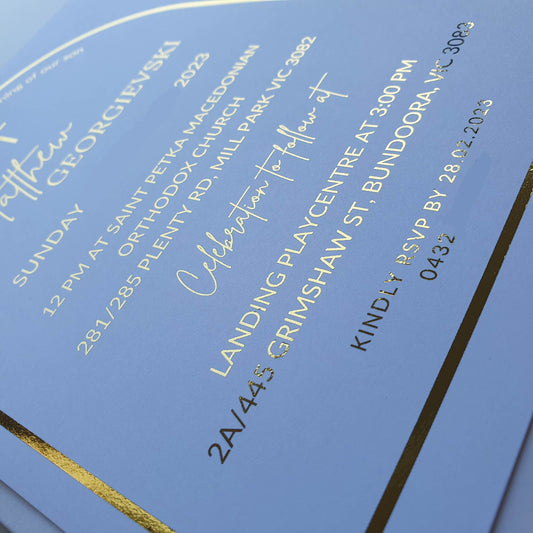 ning of our son
Matthew
GEORGIEVSKI
SUNDAY 2023
12 PM AT SAINT PETKA MACEDONIAN
ORTHODOX CHURCH
281/285 PLENTY RD, MILL PARK VIC 3082
Celebration to follow at
LANDING PLAYCENTRE AT 3:00 PM
2A/445 GRIMSHAW ST, BUNDOORA, VIC 3083
KINDLY RSVP BY 28.02.2023
0432